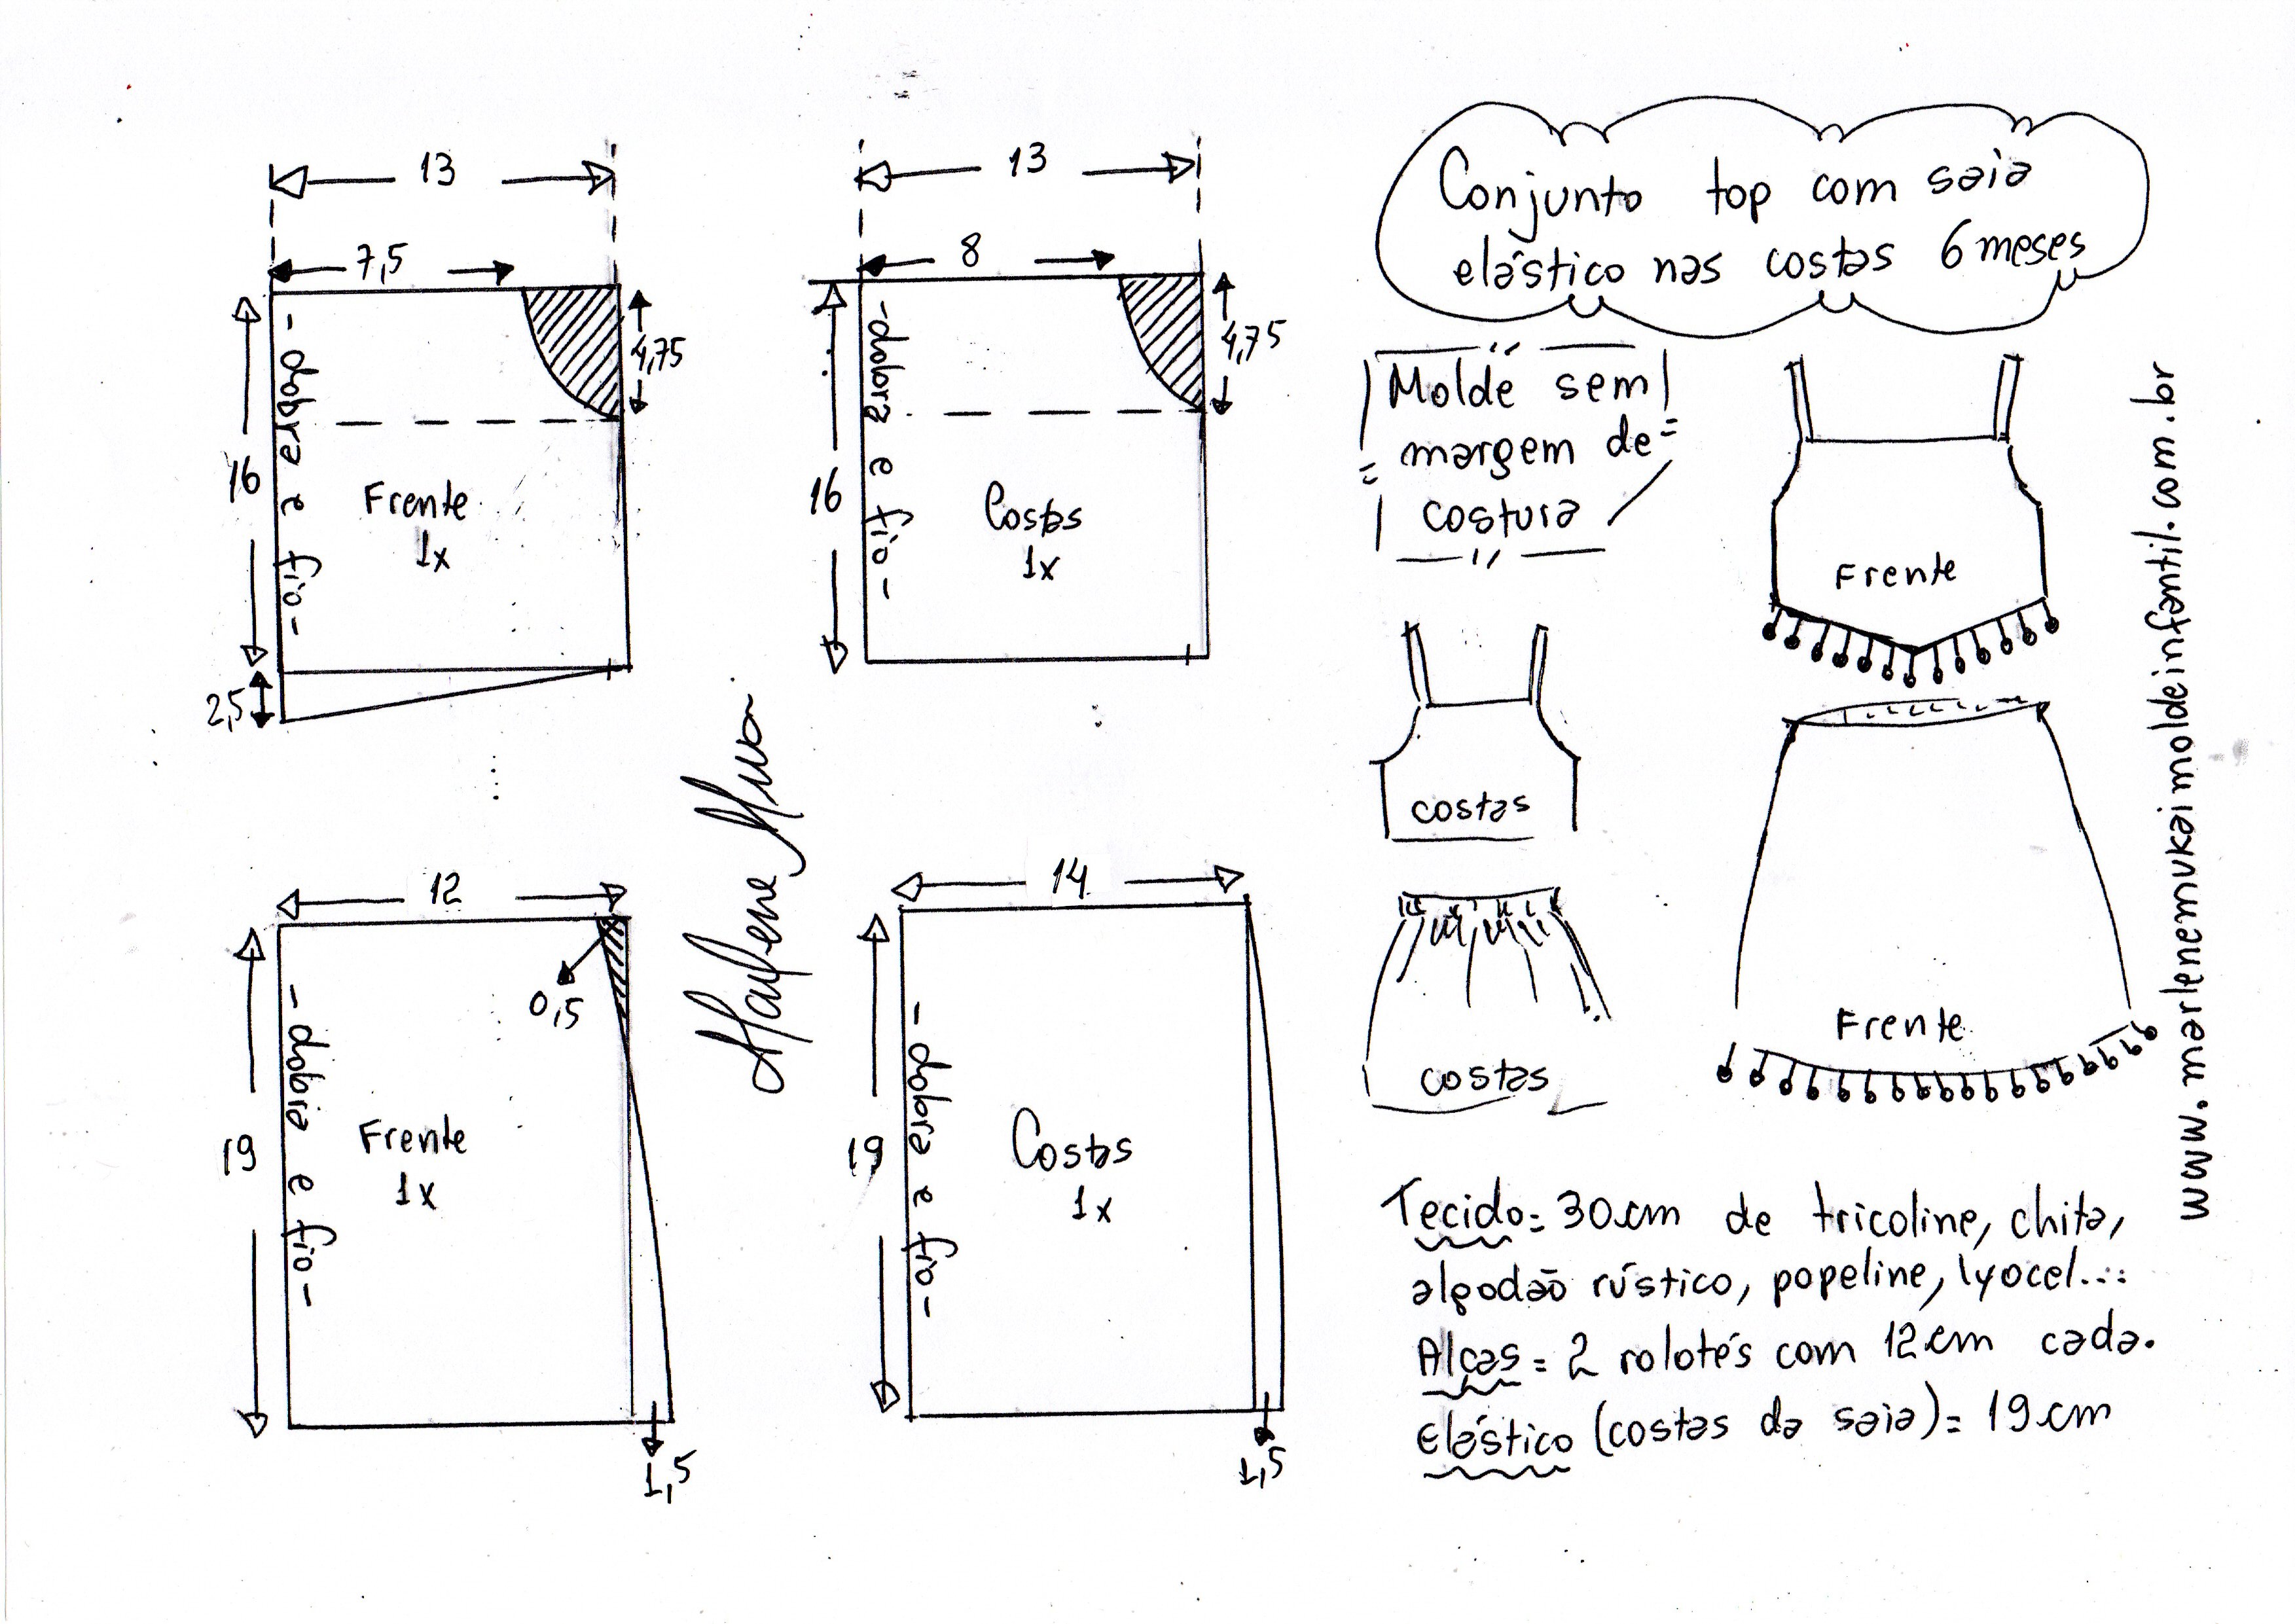 13
7,5
16
4,75
- dobra e fio -
Frente
1x
2,5
13
8
16
4,75
- dobra e fio -
Costas
1x
12
0,5
19
- dobra e fio -
Frente
1x
1,5
Marlene
14
19
- dobra e fio -
Costas
1x
1,5
Conjunto top com saia
elástico nas costas 6 meses
Molde sem
margem de
costura
Frente
costas
costas
Frente
www.marlenemukaimoldeinfantil.com.br
Tecido = 30cm de tricoline, chita,
algodão rústico, popeline, lyocel...
Alças = 2 rolotês com 12cm cada.
Elástico (costas da saia) = 19cm